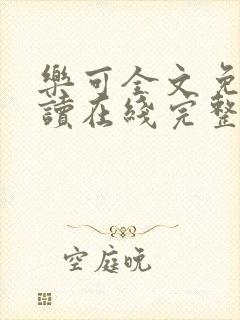 樂可全文免
讀在綫完整
空庭晚